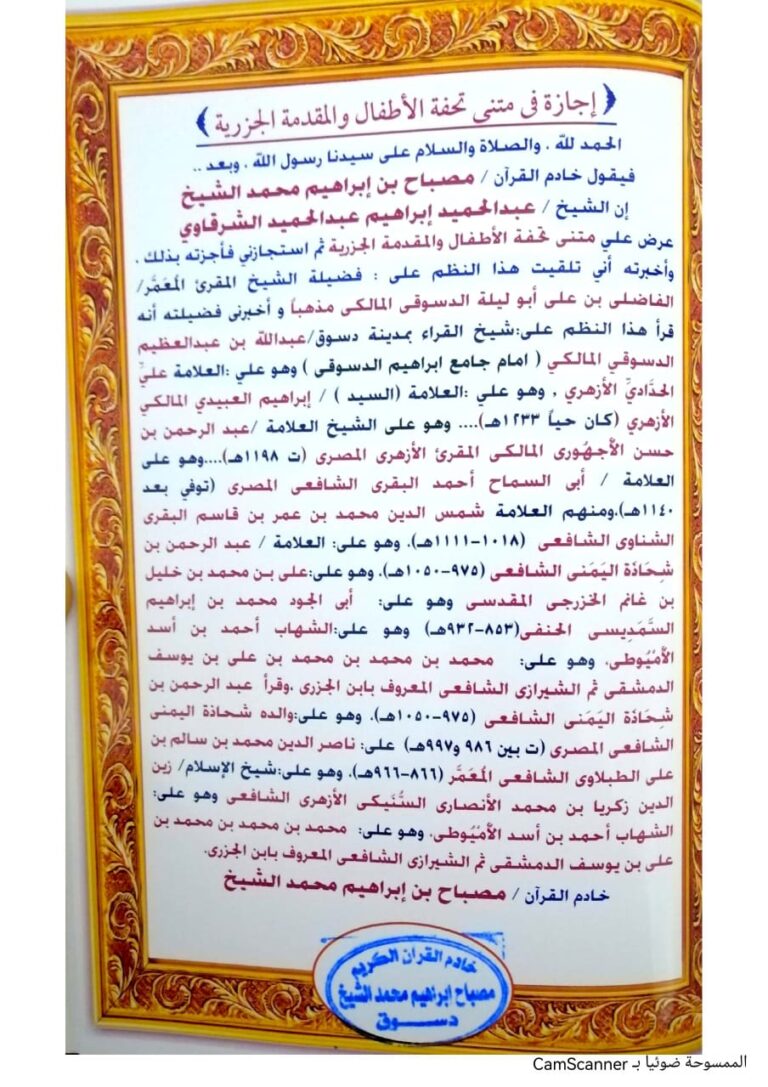 ﴿إجازة فى متنى تحفة الأطفال والمقدمة الجزرية﴾
الحمد للّه . والصلاة والسلام على سيدنا رسول اللّه . وبعد ..
فيقول خادم القرآن / مصباح بن إبراهيم محمد الشيخ
إن الشيخ / عبدالحميد إبراهيم عبدالحميد الشرقاوي
عرض علي متنى تحفة الأطفال والمقدمة الجزرية ثم استجازني فأجزته بذلك .
وأخبرته أني تلقيت هذا النظم على : فضيلة الشيخ المقرئ المُعَمَّر/
الفاضلى بن على أبو ليلة الدسوقى المالكى مذهباً و أخبرنى فضيلته أنه
قرأ هذا النظم على:شيخ القراء بمدينة دسوق/عبدالله بن عبدالعظيم
الدسوقي المالكي ( امام جامع ابراهيم الدسوقى ) وهو علي :العلامة عليِّ
الحدَّاديِّ الأزهري , وهو علي :العلامة (السيد ) / إبراهيم العبيدي المالكي
الأزهري (كان حياً ١٢٣٣هـ).... وهو على الشيخ العلامة /عبد الرحمن بن
حسن الأجهُورى المالكى المقرئ الأزهرى المصرى (ت ١١٩٨هـ)....وهو على
العلامة / أبى السماح أحمد البقرى الشافعى المصرى (توفي بعد
١١٤٠هـ).ومنهم العلامة شمس الدين محمد بن عمر بن قاسم البقرى
الشناوى الشافعى (١٠١٨-١١١١هـ). وهو على: العلامة / عبد الرحمن بن
شِحاذَة اليَمَنى الشافعى (٩٧٥-١٠٥٠هـ). وهو على:على بن محمد بن خليل
بن غانم الخزرجى المقدسى وهو على: أبى الجود محمد بن إبراهيم
السَّمَدِيسى الحنفى(٨٥٣-٩٣٢هـ) وهو على:الشهاب أحمد بن أسد
الأمْيُوطى. وهو على: محمد بن محمد بن محمد بن على بن يوسف
الدمشقى ثم الشيرازى الشافعى المعروف بابن الجزرى .وقرأ عبد الرحمن بن
شِحاذَة اليَمَنى الشافعى (٩٧٥-١٠٥٠هـ). وهو على:والده شحاذة اليمنى
الشافعى المصرى (ت بين ٩٨٦ و٩٩٧هـ) على: ناصر الدين محمد بن سالم بن
على الطبلاوى الشافعى المُعَمَّر (٨٦٦-٩٦٦هـ). وهو على:شيخ الإسلام/ زين
الدين زكريا بن محمد الأنصارى السُّنَيكى الأزهرى الشافعى وهو على:
الشهاب أحمد بن أسد الأمْيُوطى. وهو على: محمد بن محمد بن محمد بن
على بن يوسف الدمشقى ثم الشيرازى الشافعى المعروف بابن الجزرى.
خادم القرآن / مصباح بن إبراهيم محمد الشيخ
خادم القران الكريم
مصباح ابراهيم محمد الشيخ
دسوق
الممسوحة ضوئيا بـ CamScanner